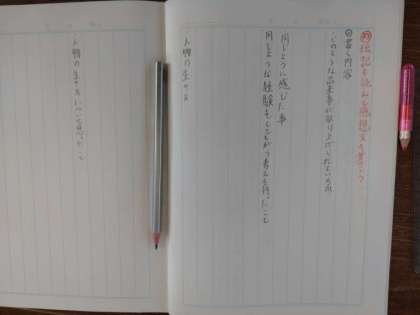 伝記を読んで感想文を書こう
書く内容
どのような出来事が取り上げられているか
同じように感じた事
同じような経験をしてちがう考えを持ったこと
人物の生き方
人物の生き方について思ったこと